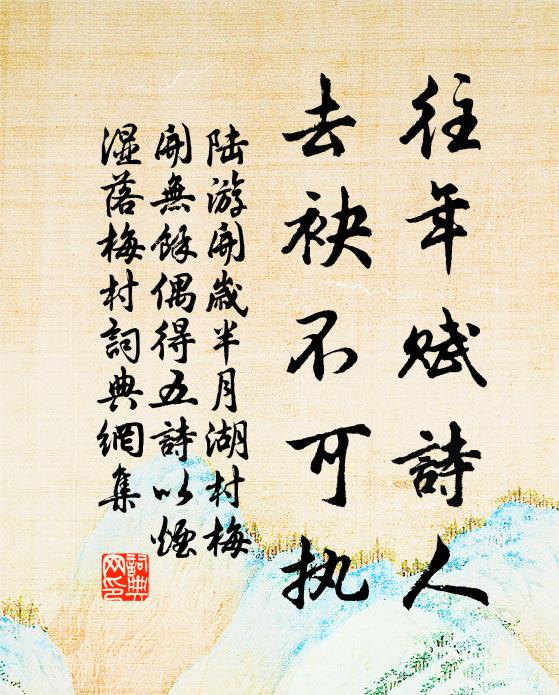 往年赋詩人
去袂不可执
陆游開歳半月湖村梅
開無餘偶得五詩以煙
濕落梅村詞典網集
詞典
文印